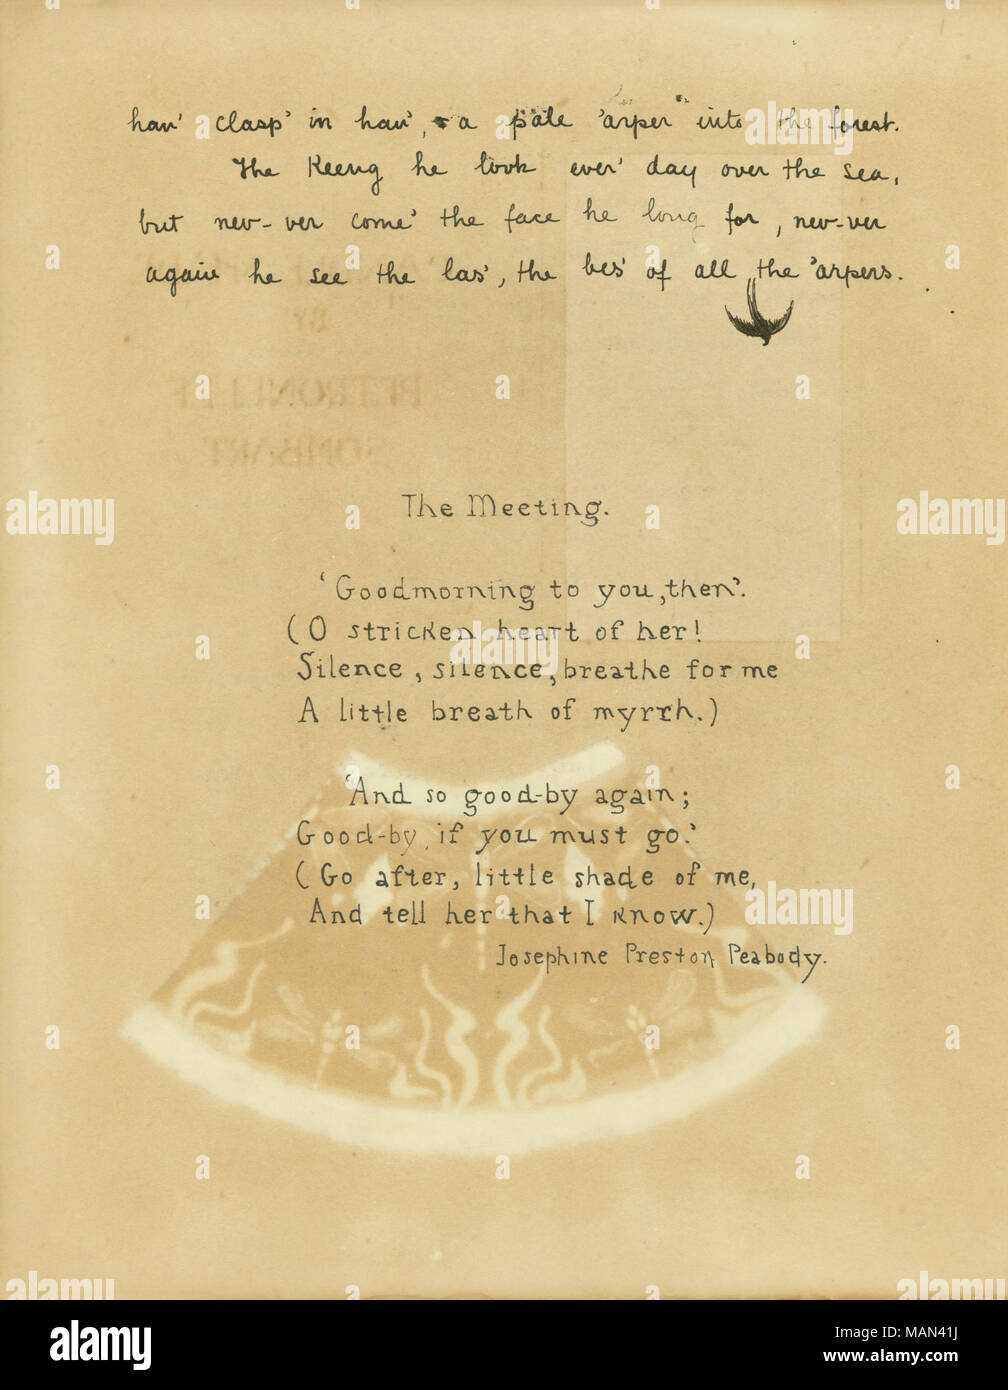 han' clasp' in han', - a pale 'arper into the forest.
The Keeng he look ever' day over the sea,
but nev-ver come' the face he long for, nev-ver
again he see the las', the bes' of all the 'arpers.
BY
PETRONELLE
SOMBART
The Meeting.
'Goodmorning to you, then'.
(O stricken heart of her!
Silence, silence, breathe for me
A little breath of myrrh.)
'And so good-by again;
Good-by, if you must go.'
(Go after, little shade of me,
And tell her that I know.)
Josephine Preston Peabody.
alamy
Image ID: MAN41J
www.alamy.com